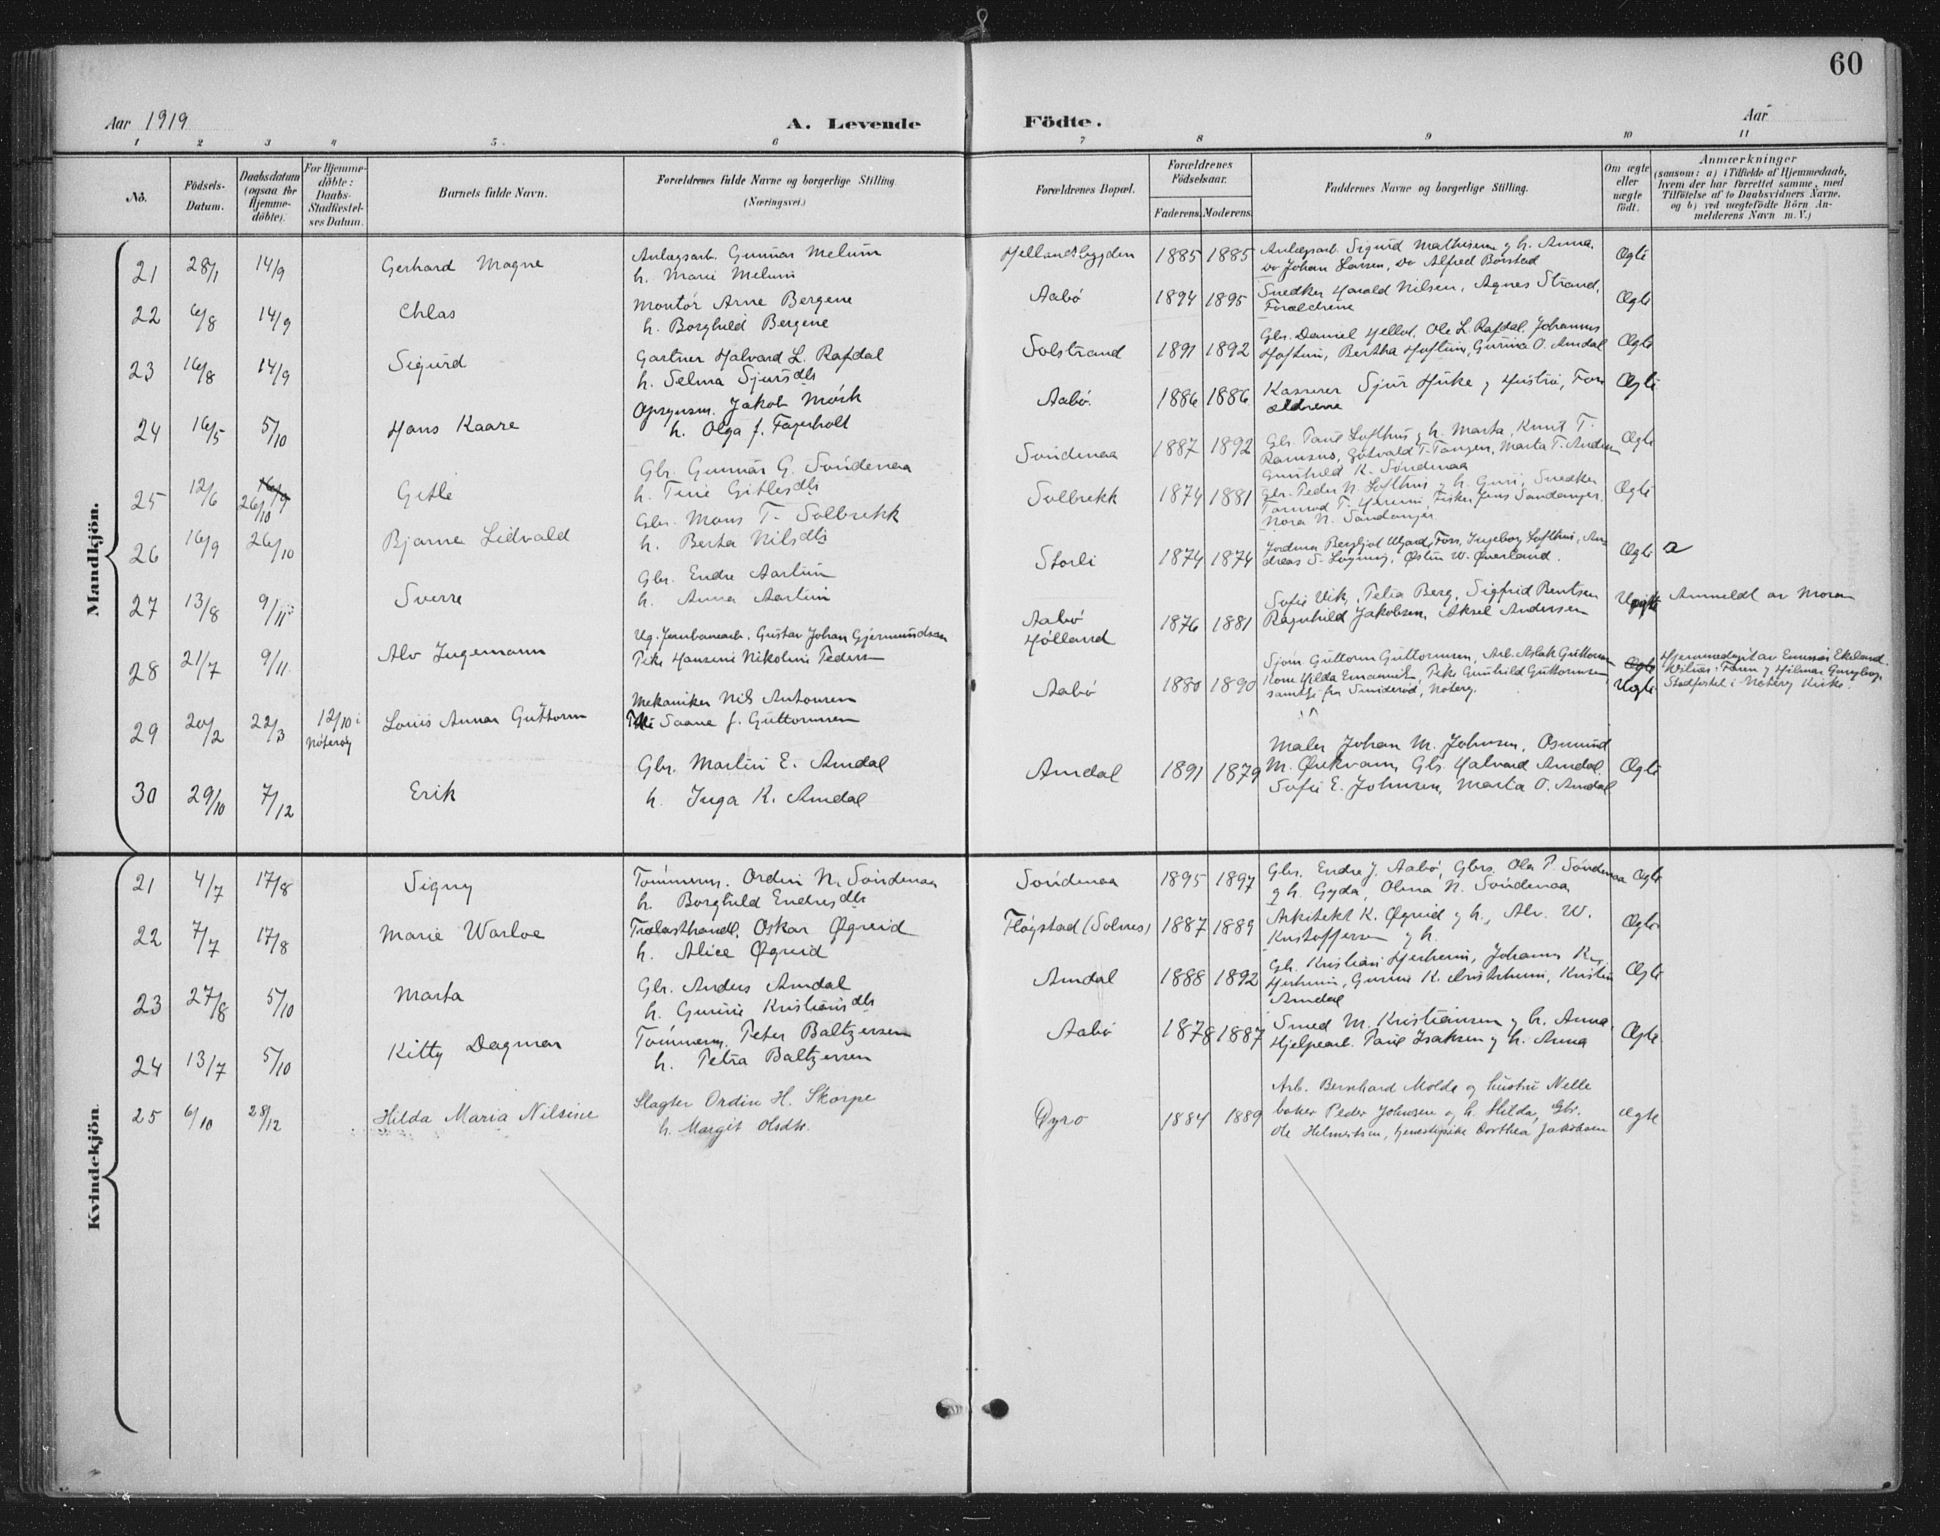 60
Aar 1919
A. Levende Födte.
Aar
1 2 3 4 5. 6 7 8 9 10 11
No.
Födsels-Datum.
Daabsdatum (ogsaa for Hjemme-döbte).
For Hjemme-döbte: Daabs-Stadfæstel-ses Datum.
Barnets fulde Navn.
Forældrenes fulde Navne og borgerlige Stilling.
(Næringsvei.)
Forældrenes Bopæl.
Forældrenes Födselsaar.
Faderens. Moderens.
Faddernes Navne og borgerlige Stilling.
Om ægte eller uægte födt.
Anmærkninger
(saasom: a) i Tilfælde af Hjemmedaab,
hvem der har forrettet samme, med
Tilföielse af to Daabsvidners Navne,
og b) ved uægtefödte Börn An-
melderens Navn m. V.)
Mandkjön.
21 28/1 14/9 Gerhard Magne
Anlægsarb. Gunnar Melum
h. Marie Melum
Hellandsbygden 1885 1885
Anlægsarb. Sigurd Mathisen og h. Anna,
do Johan Larsen, do Alfred Borstad
Ægte
22 6/8 14/9 Chlas
Montör Arne Bergene
h. Borghild Bergene
Aabö 1894 1895
Snedker Harald Nilsen, Agnes Strand,
Forældrene
Ægte
23 16/8 14/9 Sigurd
Gartner Halvard L. Rafdal
h. Selma Sjursdtr
Solstrand 1891 1892
Gbr. Daniel Hellot, Ole L. Rafdal, Johannes
Hoftun, Bertha Hoftun, Gurina O. Amdal
Ægte
24 16/5 5/10 Hans Kaare
Jakob Mörk
h. Olga f. Fagerholt
Aabö 1886 1886
Kasserer Sjur Huke og Hustru, For
ældrene
Ægte
25 12/6 14/9 26/10 Gitle
Gbr. Gunnar G. Söndenaa
h. Tine Gitlesdtr
Söndenaa 1887 1892
Gbr. Paul Lofthus og h. Marta, Knut T.
Ramsnes, Gotvald T. Tangen, Marta T.
Gunhild K. Söndenaa
Ægte
26 16/9 26/10 Bjarne Lidvald
Gbr. Mons T. Solbrekk
h. Berta Nilsdtr
Solbrekk 1874 1881
Gbr. Peder N. Lofthus og h. Guri, Snedker
Tormod T. Fisker Jens Sandanger,
Nora N. Sandanger
Ægte
27 13/8 9/11 Sverre
Gbr. Endre Aartun
h. Anna Aartun
Storli 1874 1874
Ingeborg Lofthus, An-
dreas S. Östen W. Överland.
Ægte a
28 21/7 9/11 Alv Ingemann
Ug. Jernbanearb. Gustav Johan Gjermundsen
Pike Hansine Nikoline Peders
Aabö
Hölland
1876 1881
Sofie Vik, Petra Berg, Sigfrid Bentsen
Ragnhild Jakobsen, Aksel Andersen
Uægte Anmeldt av Moren
29 20/2 22/3 12/10 i Nöteröy Louis Annar Guttorm
Mekaniker Nils Antonsen
Pike Saane f. Guttormsen
Aabö 1880 1890
Sjöm. Guttorm Guttormsen, Arb. Aslak Guttormsen
Kone Hilda Pike Gunhild Guttormsen,
samtl. fra Nöteröy.
Ægte
Uægte
Hjemmedöpt av Ekeland.
Vitner: Faren og Hilmar
Stadfestet i Nöteröy Kirke.
30 29/10 7/12 Erik
Gbr. Martin E. Amdal
h. Inga K. Amdal
Amdal 1891 1879
Maler Johan M. Johnsen, Osmund
M. Örekvam, Gbr. Halvard Amdal
Sofie E. Johnsen, Marta O. Amdal
Ægte
Kvindekjön.
21 4/7 17/8 Signy
Tömmerm. Ordin N. Söndenaa
h. Borghild Endresdtr
Söndenaa 1895 1897
Gbr. Endre J. Aabö, Gbr. Ola P. Söndenaa
og h. Gyda, Olena N. Söndenaa
Ægte
22 7/7 17/8 Marie Warloe
Trælasthandl. Oskar Øgreid
h. Alice Øgreid
Flögstad (Solnes) 1887 1889
Arkitekt K. Øgreid og h., Alv. W.
Kristoffersen og h.
Ægte
23 27/8 5/10 Marta
Gbr. Anders Amdal
h. Gurine Kristiansdtr
Amdal 1888 1892
Gbr. Kristian Hjerheim, Johannes K.
Hjerheim, Gurine K. Kristin
Amdal
Ægte
24 13/7 5/10 Kitty Dagmar
Tömmerm. Peter Baltzersen
h. Petra Baltzersen
Aabö 1878 1887
Smed M. Kristiansen og h. Anna,
Hjelpearb. Paul Isaksen og h. Anna
Ægte
25 6/10 28/12 Hilda Maria Nilsine
Slagter Ordin H. Skorpe
h. Margit Olsdtr.
Øyro 1884 1889
Arb. Bernhard Molde og hustru Nelle
baker Peder Johnsen og h. Hilda, Gbr.
Ole Helmertsen, tjenestepike Dorthea Jakobsen
ægte